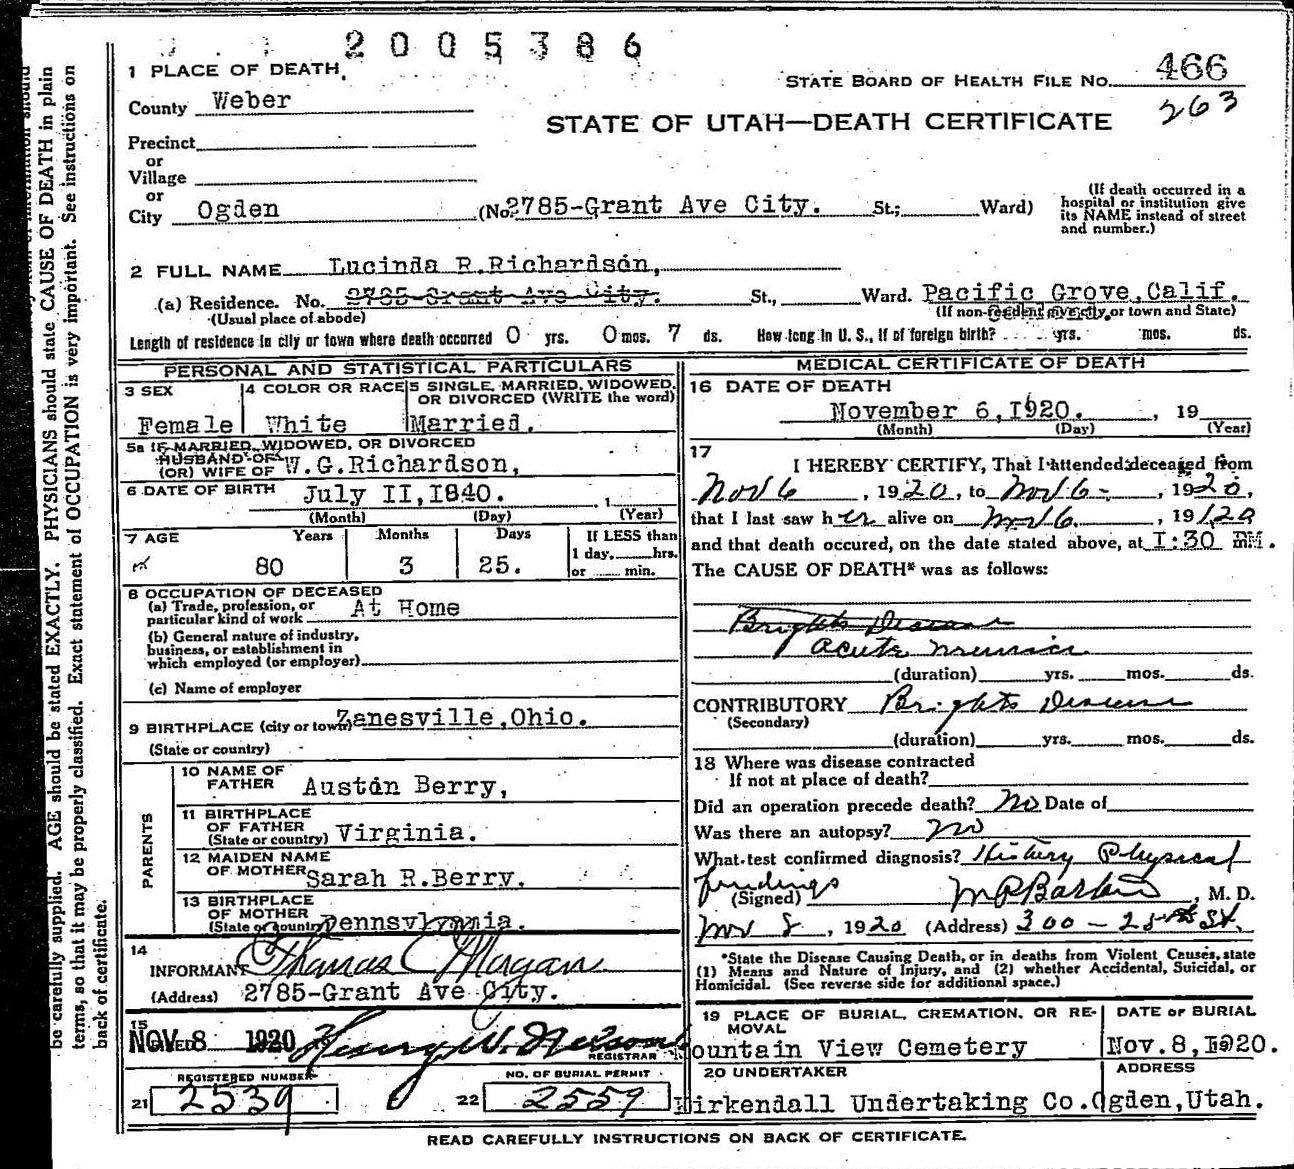 2005386
1 PLACE OF DEATH
STATE BOARD OF HEALTH FILE No. 466
County Weber
263
STATE OF UTAH—DEATH CERTIFICATE
Precinct
or
Village
or
City Ogden (No. 2785-Grant Ave City. St.; Ward)
(If death occurred in a
hospital or institution give
its NAME instead of street
and number.)
2 FULL NAME Lucinda R.Richardson,
(a) Residence. No. 2785-Grant Ave City. St., Ward. Pacific Grove,Calif.
(Usual place of abode) (If non-resident give city, or town and State)
Length of residence in city or town where death occurred 0 yrs. 0 mos. 7 ds. How long in U. S., if of foreign birth? yrs. mos. ds.
PERSONAL AND STATISTICAL PARTICULARS
3 SEX 4 COLOR OR RACE 5 SINGLE, MARRIED, WIDOWED,
OR DIVORCED (WRITE the word)
Female White Married.
5a IF MARRIED, WIDOWED, OR DIVORCED
HUSBAND OF
(OR) WIFE OF W.G.Richardson,
6 DATE OF BIRTH July II,I840. , 1
(Month) (Day) (Year)
7 AGE Years Months Days If LESS than
1 day, hrs.
or min.
80 3 25.
8 OCCUPATION OF DECEASED
(a) Trade, profession, or
particular kind of work At Home
(b) General nature of industry,
business, or establishment in
which employed (or employer)
(c) Name of employer
9 BIRTHPLACE (city or town) Zanesville,Ohio.
(State or country)
PARENTS
10 NAME OF
FATHER Austin Berry,
11 BIRTHPLACE
OF FATHER
(State or country) Virginia.
12 MAIDEN NAME
OF MOTHER Sarah R.Berry.
13 BIRTHPLACE
OF MOTHER
(State or country) Pennsylvania.
14
INFORMANT Thomas C Morgan
(Address) 2785-Grant Ave City.
15
NOV 8 1920 Henry W. Nelson
REGISTRAR
REGISTERED NUMBER NO. OF BURIAL PERMIT
21 2539 22 2559
MEDICAL CERTIFICATE OF DEATH
16 DATE OF DEATH
November 6,I920. , 19
(Month) (Day) (Year)
17
I HEREBY CERTIFY, That I attended deceased from
Nov 6 , 1920, to Nov 6 - , 1920,
that I last saw her alive on Nov 6 , 19120
and that death occured, on the date stated above, at I:30 PM.
The CAUSE OF DEATH* was as follows:
Brights Disease
acute uremia
(duration) yrs. mos. ds.
CONTRIBUTORY Brights Disease
(Secondary)
(duration) yrs. mos. ds.
18 Where was disease contracted
If not at place of death?
Did an operation precede death? no Date of
Was there an autopsy? no
What test confirmed diagnosis? History Physical
findings
(Signed) , M. D.
Nov 8 , 1920 (Address) 300 - 25th St.
*State the Disease Causing Death, or in deaths from Violent Causes, state
(1) Means and Nature of Injury, and (2) whether Accidental, Suicidal, or
Homicidal. (See reverse side for additional space.)
19 PLACE OF BURIAL, CREMATION, OR RE-
MOVAL
DATE OF BURIAL
Mountain View Cemetery Nov.8,I920.
20 UNDERTAKER ADDRESS
Kirkendall Undertaking Co. Ogden,Utah.
READ CAREFULLY INSTRUCTIONS ON BACK OF CERTIFICATE.
be carefully supplied. AGE should be stated EXACTLY. PHYSICIANS should state CAUSE OF DEATH in plain
terms, so that it may be properly classified. Exact statement of OCCUPATION is very important. See instructions on
back of certificate.